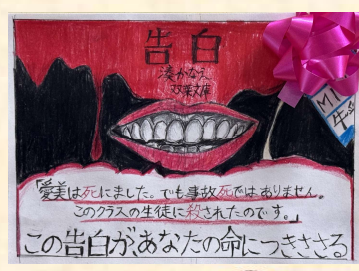 告白
湊かなえ
双葉文庫
「愛美は死にました。でも事故死ではありません。
このクラスの生徒に殺されたのです。」
この告白が、あなたの命につきささる